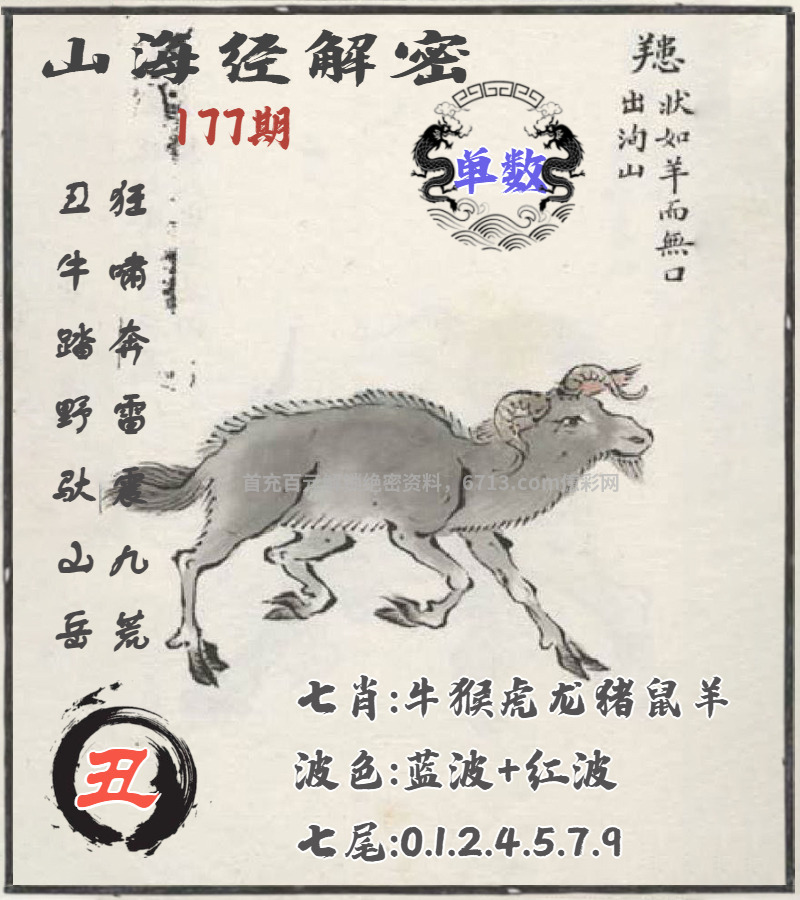 山海经解密
177期
单数
䍺
狀如羊而無口
出洵山
狂啸奔雷震九荒
丑牛踏野驮山岳
首充百元 绝密资料，6713.com 彩网
丑
七肖:牛猴虎龙猪鼠羊
波色:蓝波+红波
七尾:0.1.2.4.5.7.9